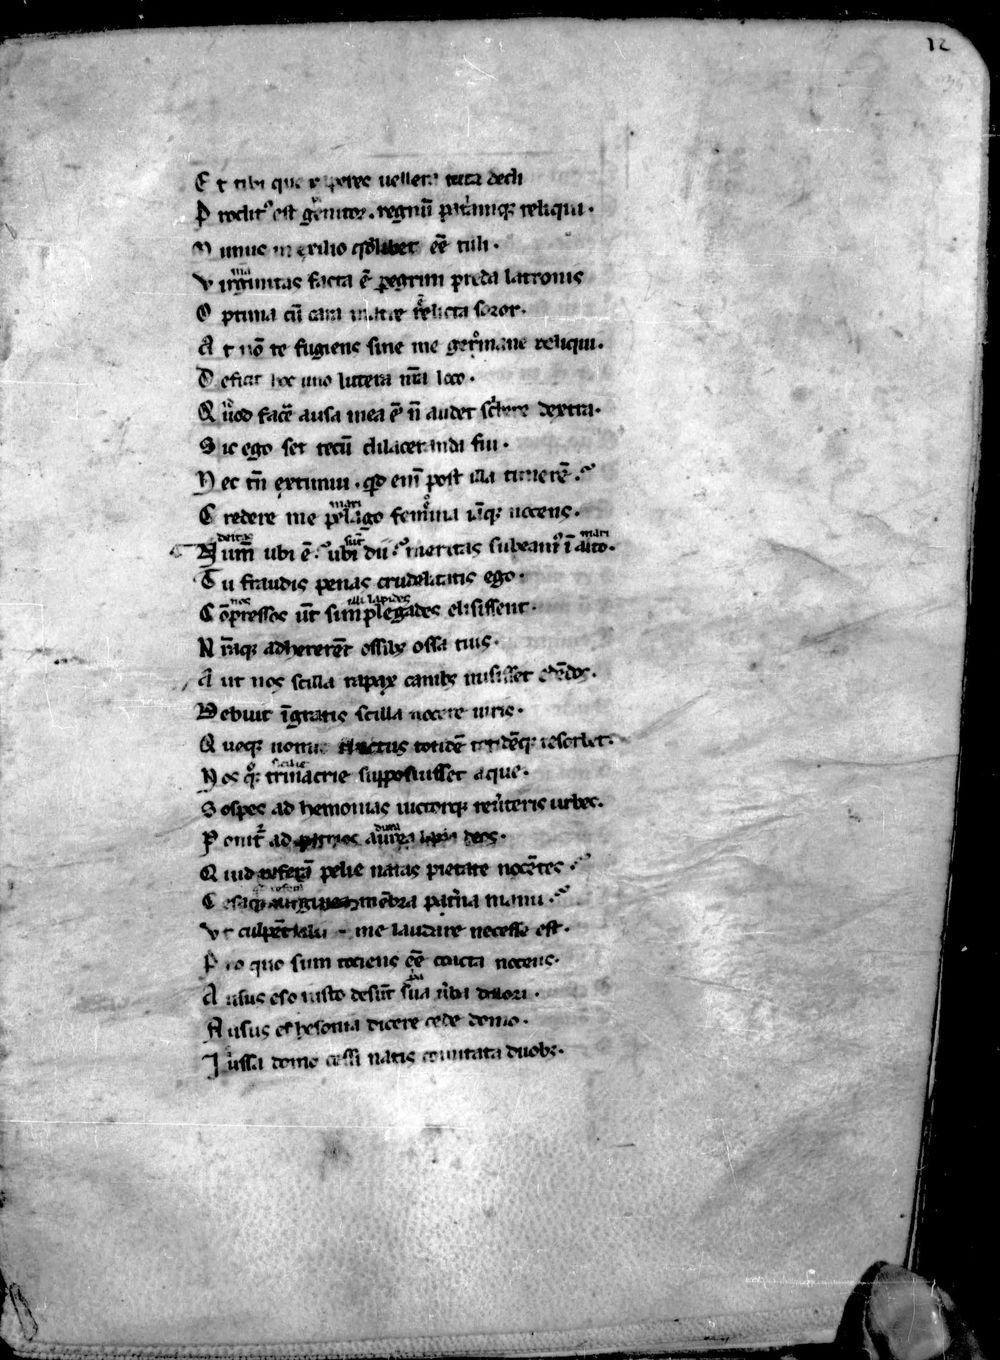 12
Et tibi que raperes uellera tuta dedi
Prodit᷒ est genitor. regnū pat'amq; reliqui.
Munus in exilio qdlibet eē tuli.
ma
Virginitas facta ē pegrini preda latronis
Optima cū cara matre relicta soror.
At nō te fugiens sine me germane reliqui.
Deficit hoc uno littera nr̄a loco.
Quod facē ausa mea ē n̄ audet scbere dextra.
Sic ego set tecū dilaceranda fui.
Nec tn̄ extimui. qd eni post illa timerē.
mari
Credere me pelago femina iāq; nocens.
deitas sūt mari
Num̄ ubi ē. ubi dii. meritas subeam᷒ ī alto.
Tu fraudis penas crudelitatis ego.
nos illi lapides
Cōpressos ut simplegades elisissent.
Nr̄aq; adhererēt ossib; ossa tuis.
Aut nos scilla rapax canib; misisset edēdos.
Debuit īgratis scilla nocere uiris.
Queq; uomit fluctus totidē totidēq; resorbet.
sicilie
Nos q; trinacrie supposuisset aque.
Sospes ad hemonias uictorq; reu'teris urbes.
Ponit ad patrios aurea lana deos.
Quid referā pelie natas pietate nocētes.
Cesaq; uirginea mēbra pat'na manu.
Vt culpēt alii me laudare necesse est.
Pro quo sum tociens eē coacta nocens.
Ausus es o iusto desūt sua u'ba dolori.
Ausus es hesonia dicere cede domo.
Iussa domo cessi natis comitata duob;.